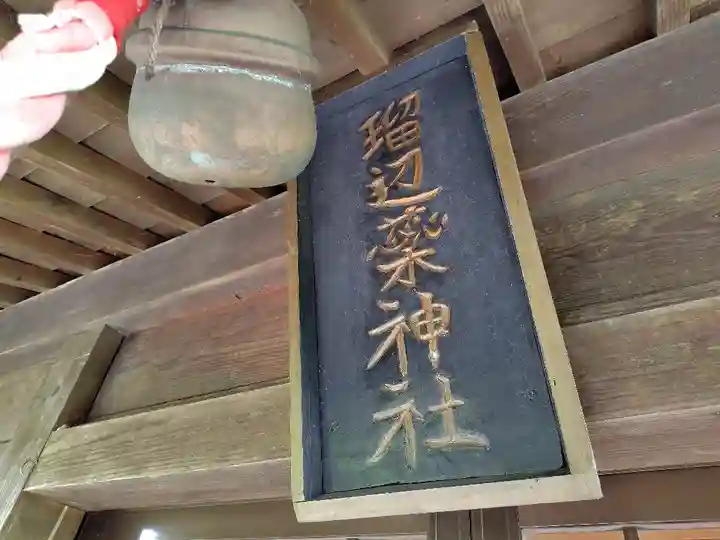 瑠辺蘂神社